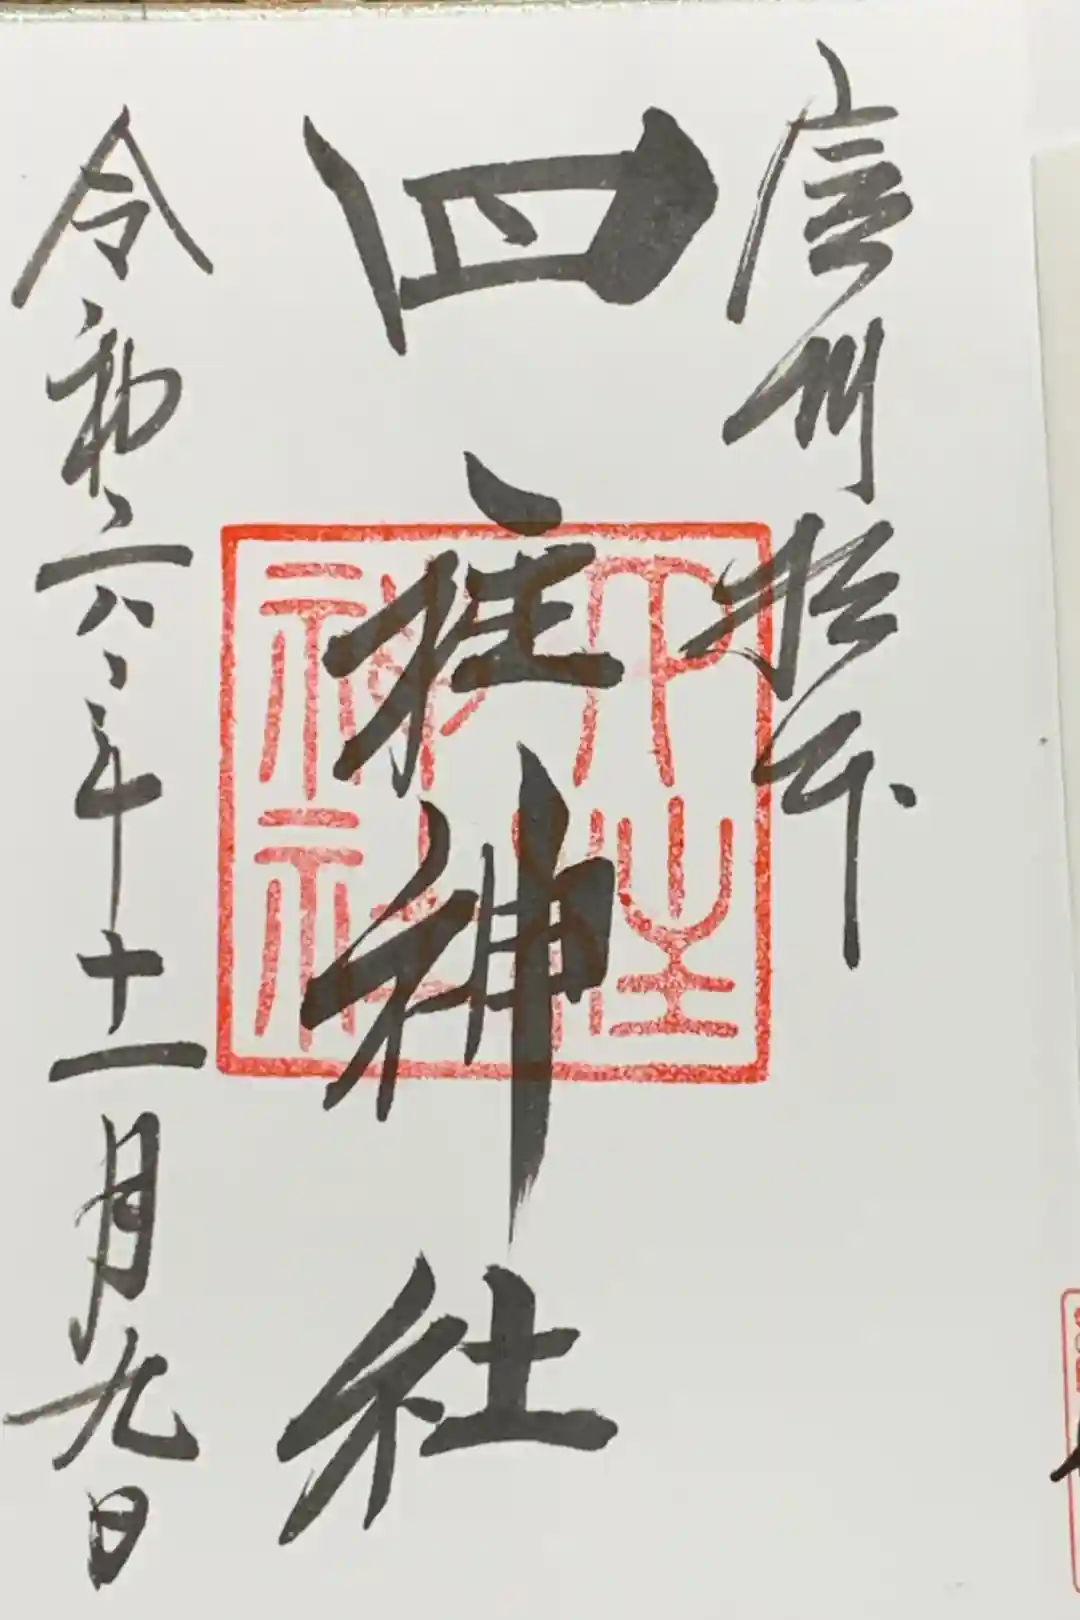 信州松本
四柱神社
令和六年十一月九日
四柱
神社